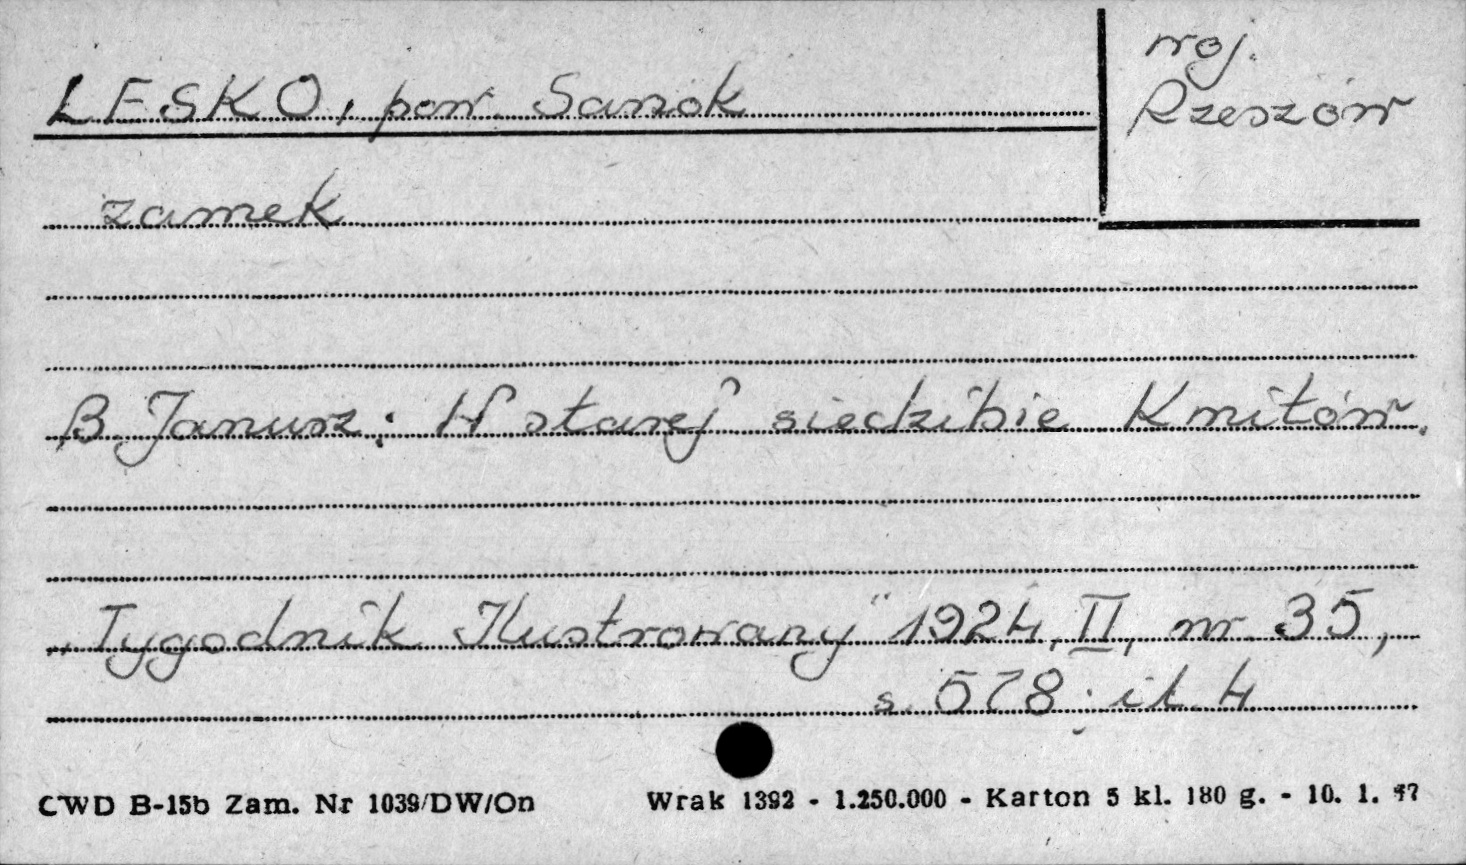 LESKO, pow. Sanok
woj.
Rzeszów
zamek
B. Janusz: W starej siedzibie Kmitów.
„Tygodnik Ilustrowany" 1924, II, nr 35,
s. 578; il. 4
CWD B-15b Zam. Nr 1039/DW/On Wrak 1392 - 1.250.000 - Karton 5 kl. 180 g. - 10. 1.